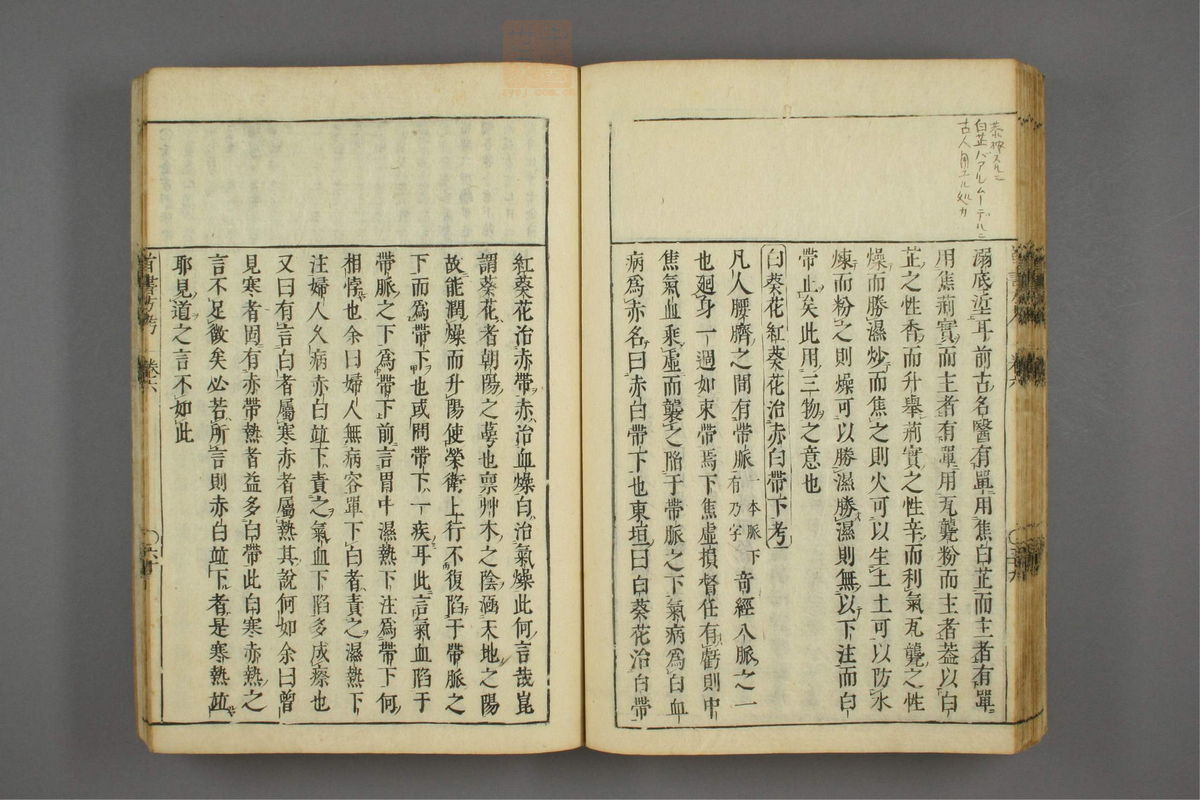 溺底坙耳前古名醫有單用焦白芷而主者有單
用焦荊實而主者有單用瓦甃粉而主者葢以白
芷之性香而升舉荊實之性辛而利氣瓦甃之性
燥而勝濕炒而焦之則火可以生土土可以防水
煉而粉之則燥可以勝濕勝濕則無以下注而白
帶止矣此用三物之意也
白葵花紅葵花治赤白帶下考
凡人腰臍之間有帶脈一本脈下有乃字奇經八脈之一
也廻身一週如束帶焉下焦虛損督任有虧則中
焦氣血乘虛而襲之陷于帶脈之下氣病為白血
病為赤名曰赤白帶下也東垣曰白葵花治白帶
紅葵花治赤帶赤治血燥白治氣燥此何言哉崑
謂葵花者朝陽之蕚也禀艸木之陰涵天地之陽
故能潤燥而升陽使榮衛上行不復陷于帶脈之
下而為帶下也或問帶下一疾耳此言氣血陷于
帶脈之下為帶下前言胃中濕熱下注為帶下何
相悖也余曰婦人無病容單下白者責之濕熱下
注婦人久病赤白竝下責之氣血下陷多成瘵也
又曰有言白者屬寒赤者屬熱其說何如余曰曾
見寒者固有赤帶熱者益多白帶此白寒赤熱之
言不足徵矣必若所言則赤白竝下者是寒熱竝
耶見道之言不如此
白芷バアルムーデルニ
古人用エル処カ
首書方考 卷六